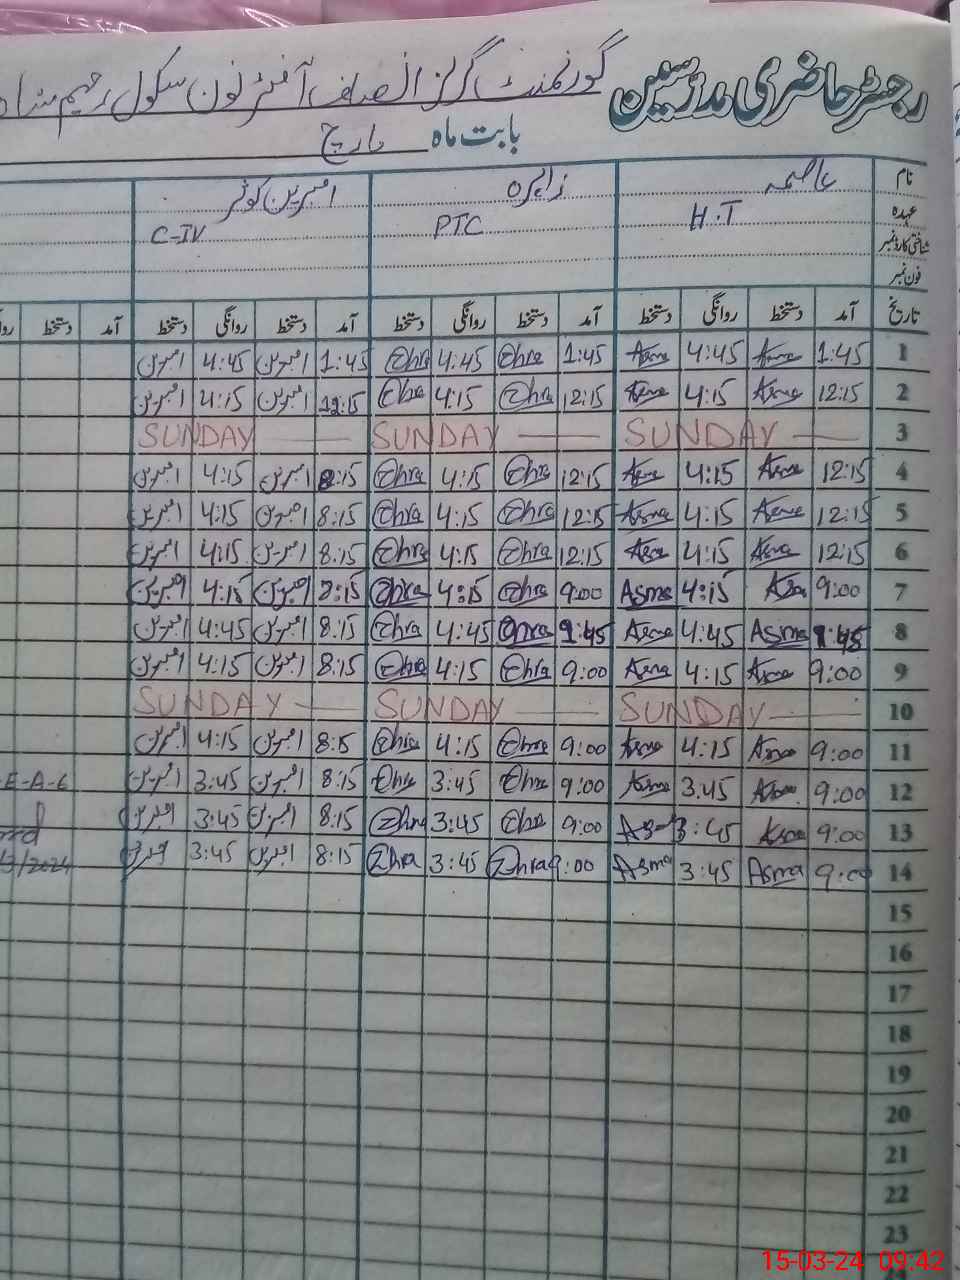 رجسٹر حاضری مدرسین گورنمنٹ گرلز انصاف آفٹر نون سکول رحیم
بابت ماہ مارچ
نام عاصمہ زاہرہ امبرین کوثر
عہدہ H.T PTC C-IV
شناختی کارڈ نمبر
فون نمبر
تاریخ آمد دستخط روانگی دستخط آمد دستخط روانگی دستخط آمد دستخط روانگی دستخط آمد دستخط
1 1:45 Asma 4:45 Asma 1:45 Zhra 4:45 Zhra 1:45 امبرین 4:45 امبرین
2 12:15 Asma 4:15 Asma 12:15 Zhra 4:15 Zhra 12:15 امبرین 4:15 امبرین
3 SUNDAY SUNDAY SUNDAY
4 12:15 Asma 4:15 Asma 12:15 Zhra 4:15 Zhra 8:15 امبرین 4:15 امبرین
5 12:15 Asma 4:15 Asma 12:15 Zhra 4:15 Zhra 8:15 امبرین 4:15 امبرین
6 12:15 Asma 4:15 Asma 12:15 Zhra 4:15 Zhra 8:15 امبرین 4:15 امبرین
7 9:00 Asma 4:15 Asma 9:00 Zhra 4:15 Zhra 8:15 امبرین 4:15 امبرین
8 1:45 Asma 4:45 Asma 1:45 Zhra 4:45 Zhra 8:15 امبرین 4:45 امبرین
9 9:00 Asma 4:15 Asma 9:00 Zhra 4:15 Zhra 8:15 امبرین 4:15 امبرین
10 SUNDAY SUNDAY SUNDAY
11 9:00 Asma 4:15 Asma 9:00 Zhra 4:15 Zhra 8:15 امبرین 4:15 امبرین
12 9:00 Asma 3:45 Asma 9:00 Zhra 3:45 Zhra 8:15 امبرین 3:45 امبرین E-A-6
13 9:00 Asma 3:45 Asma 9:00 Zhra 3:45 Zhra 8:15 امبرین 3:45 امبرین
14 9:00 Asma 3:45 Asma 9:00 Zhra 3:45 Zhra 8:15 امبرین 3:45 امبرین 3/2024
15
16
17
18
19
20
21
22
23
15-03-24 09:42